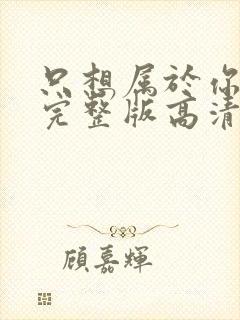 只想属於你
完整版高清
顾嘉輝